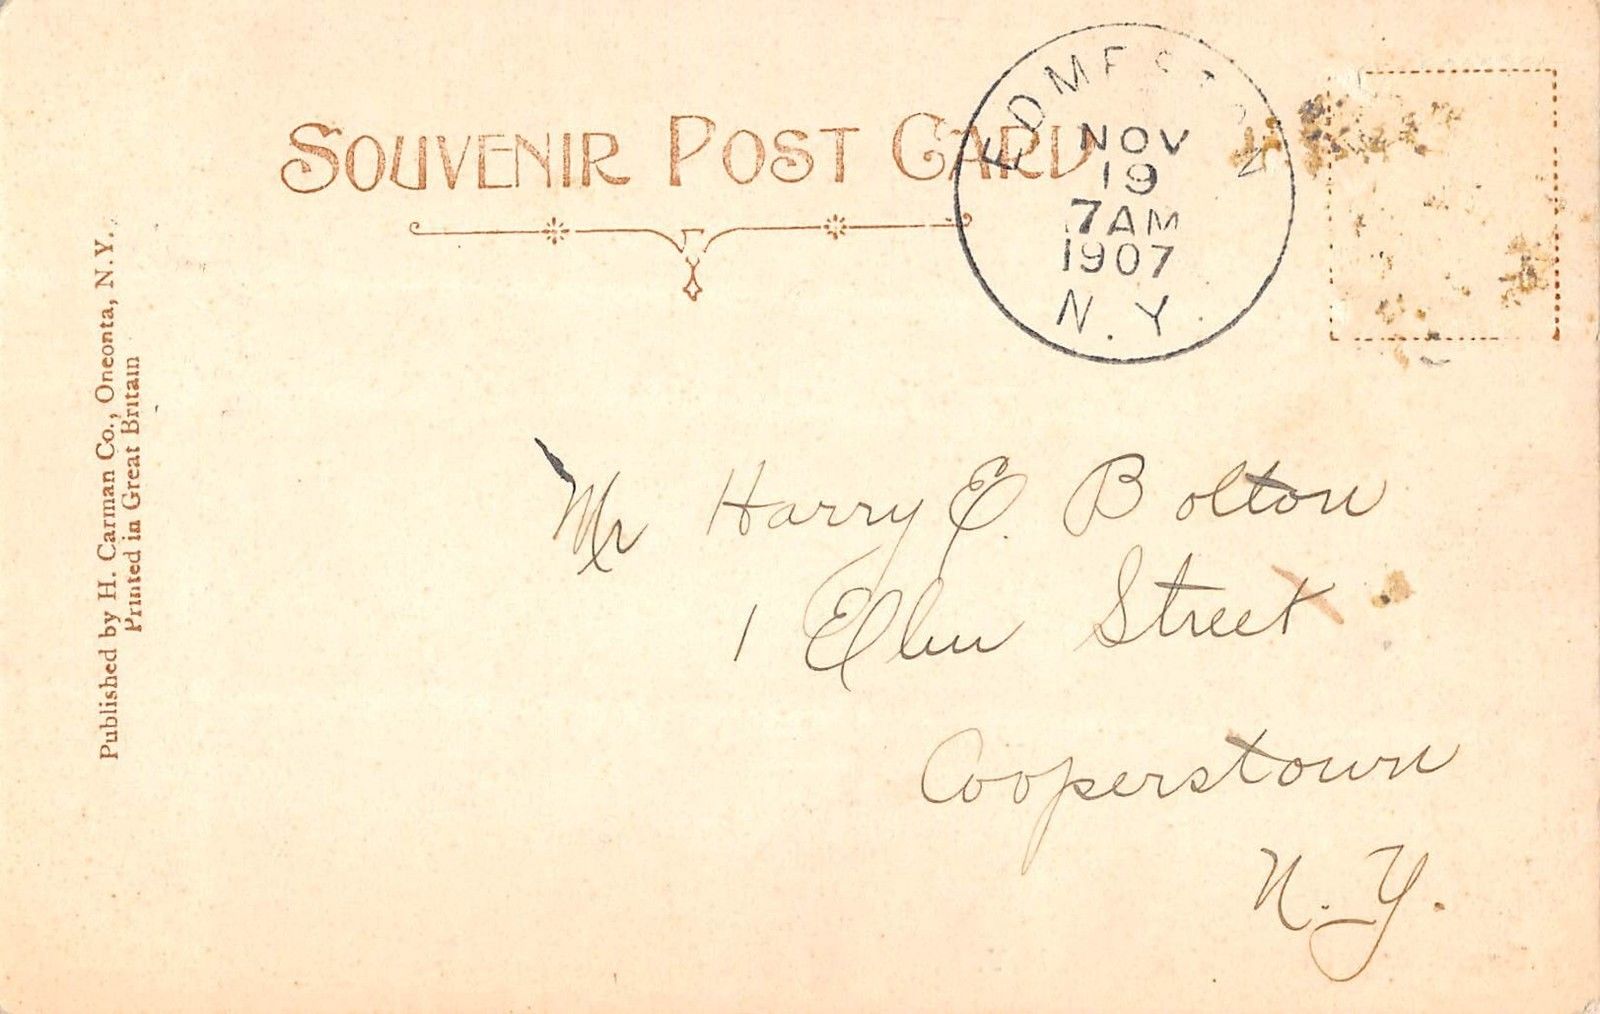 SOUVENIR POST CARD
EDMESTON
NOV
19
7 AM
1907
N. Y.
Published by H. Carman Co., Oneonta, N. Y.
Printed in Great Britain
Mr Harry E. Bolton
1 Elm Street
Cooperstown
N. Y.